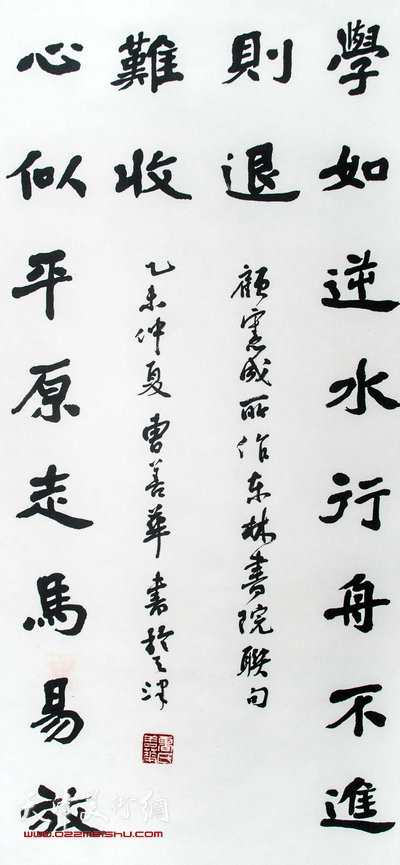 學如逆水行舟不進
則退
顧憲成所作东林書院聯句
心似平原走馬易放
難收
乙未仲夏曹善華書於天津
天津美術網
www.022meishu.com